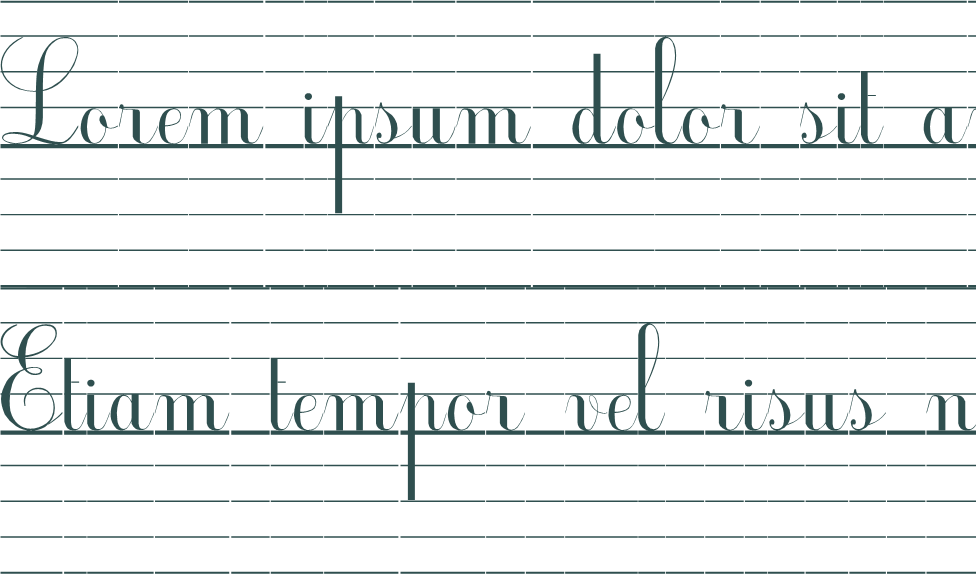 Lorem ipsum dolor sit a
Etiam tempor vel risus n